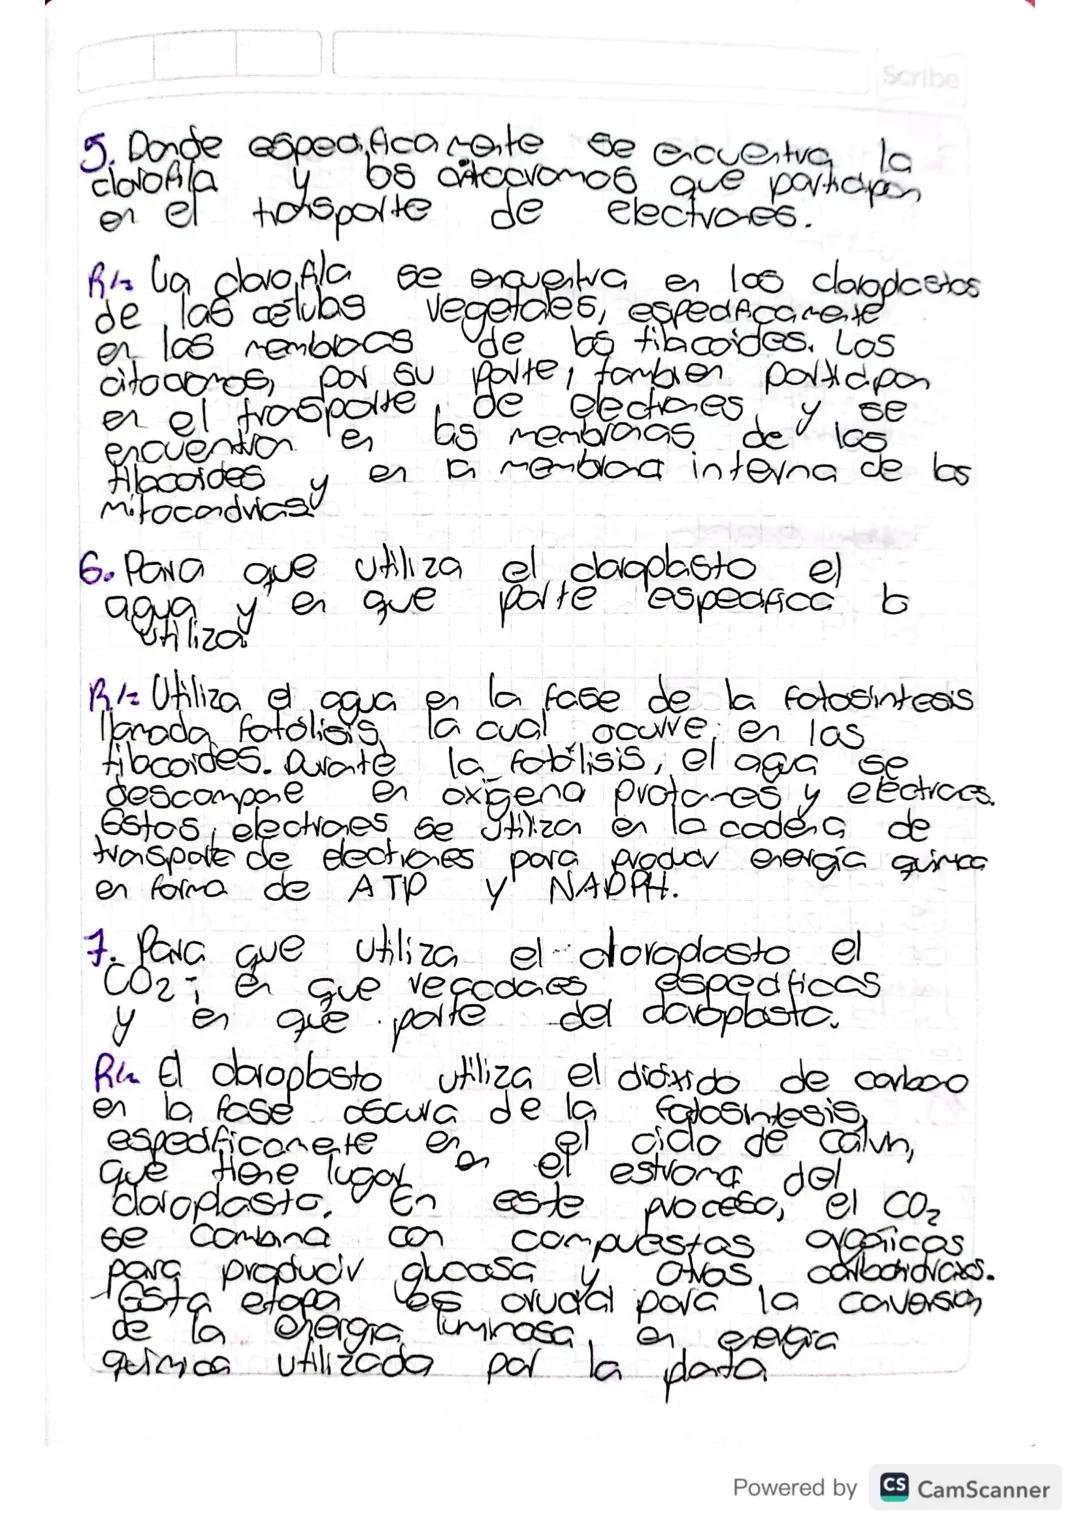 Scribe
5. Donde especificamente se encuentra la
clorofila y los citocromos que participan
en el transporte de electrones.
R/= La clorofila se encuentra en los cloroplastos
de las celulas vegetales, especificamente
en las membranas de los tilacoides. Los
citocromos, por su parte, tambien participan
en el transporte de electrones y se
encuentran en las membranas de los
tilacoides y en la membrana interna de las
mitocondrias
6. Para que utiliza el cloroplasto el
agua y en que parte especifica lo
utiliza
R/= Utiliza el agua en la fase de la fotosintesis
llamada fotólisis, la cual ocurre en los
tilacoides. Durante la fotólisis, el agua se
descompone en oxígeno protones y electrones.
Estos electrones se utilizan en la cadena de
transporte de electrones para producir energía química
en forma de ATP y NADPH.
7. Para que utiliza el cloroplasto el
CO2 - en que reacciones especificas
y en que parte del cloroplasto.
R/= El cloroplasto utiliza el dióxido de carbono
en la fase oscura de la fotosintesis,
especificamente en el ciclo de Calvin,
que tiene lugar en el estroma del
cloroplasto. En este proceso, el CO2
se combina con compuestos orgánicos
para producir glucosa y otros carbohidratos.
Esta etapa es crucial para la conversión
de la energía luminosa en energía
química utilizada por la planta
Powered by CS CamScanner